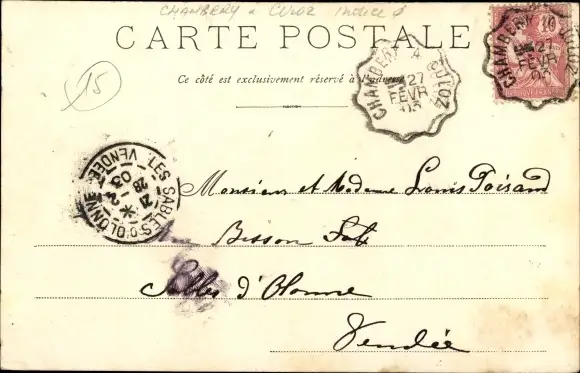 CHAMBERY A CULOZ indice 
CARTE POSTALE
Ce côté est exclusivement réservé à l'adresse
15
CHAMBERY A CULOZ
27
FEVR
03
10
CHAMBERY A CULOZ
27
FEVR
03
LES SABLES D'OLONNE
VENDÉE
21
28 -2
03
Monsieur et Madame Louis
Sables d'Olonne
Vendée